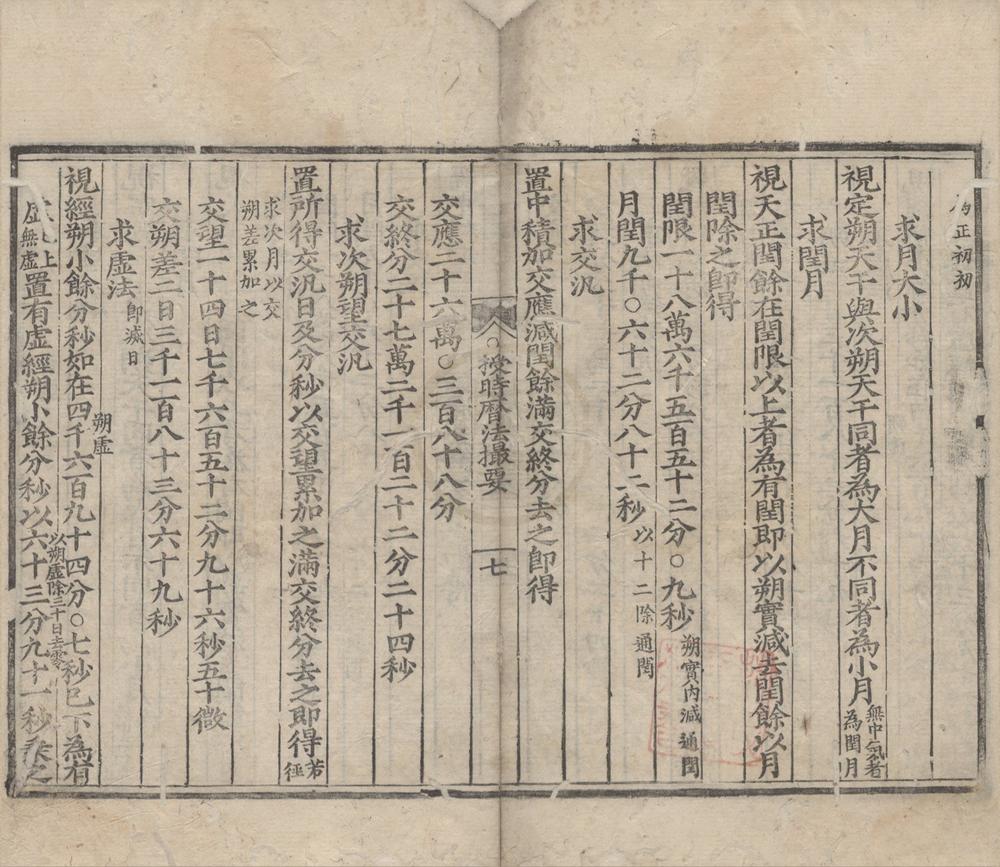 正初初
求月大小
視定朔天干與次朔天干同者為大月不同者為小月無中氣者為閏月
求閏月
視天正閏餘在閏限以上者為有閏即以朔實減去閏餘以月
閏除之即得
閏限一十八萬六千五百五十二分〇九秒朔實內減通閏
月閏九千〇六十二分八十二秒以十二除通閏
求交汎
置中積加交應減閏餘滿交終分去之即得
八〇授時曆法撮要 七
交應二十六萬〇三百八十八分
交終分二十七萬二千一百二十二分二十四秒
求次朔望交汎
置所得交汎日及分秒以交望累加之滿交終分去之即得若徑
求次月以交朔差累加之
交望一十四日七千六百五十二分九十六秒五十微
交朔差二日三千一百八十三分六十九秒
求虛法即滅日
朔虛
視經朔小餘分秒如在四千六百九十四分〇七秒已下為有
虛上虛無置有虛經朔小餘分秒以六十三分九十一秒乗之
以朔虛除三十日去零